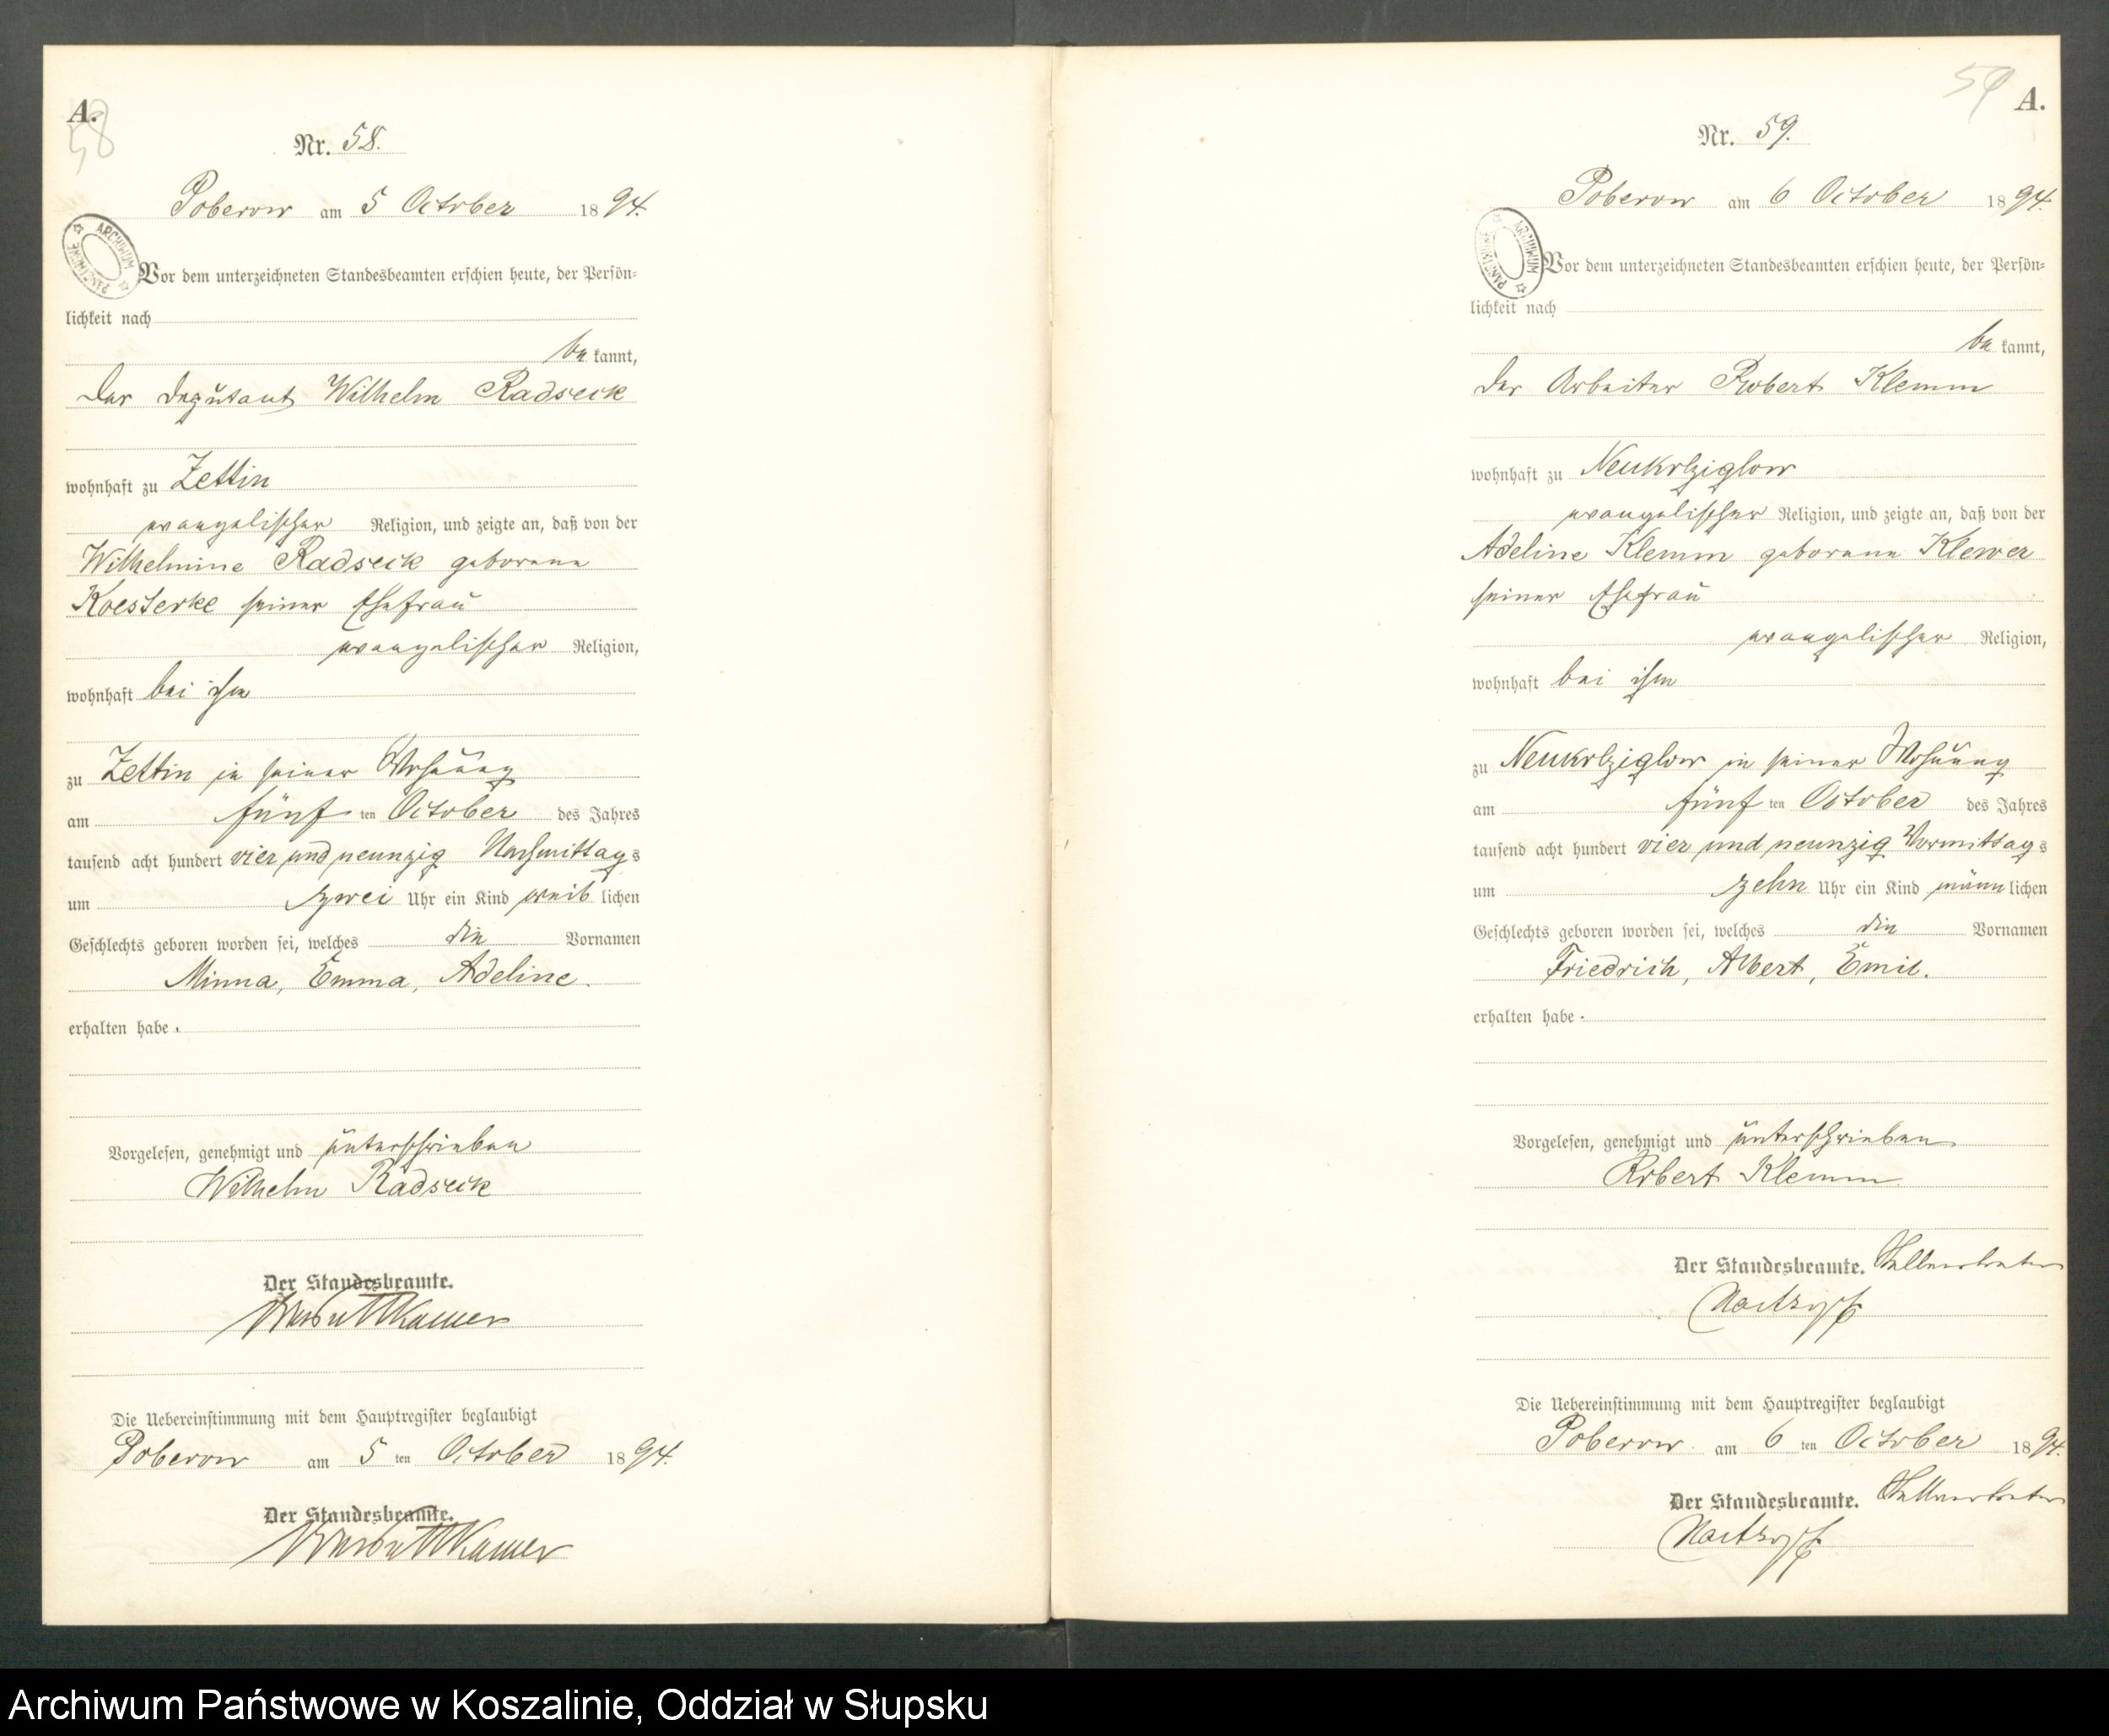 A.
58
Nr. 58.
Poberow am 5 October 1894.
ARCHIWUM PAŃSTWOWE
Vor dem unterzeichneten Standesbeamten erschien heute, der Persön-
lichkeit nach
be kannt,
der Deputant Wilhelm Radseck
wohnhaft zu Zettin
evangelischer Religion, und zeigte an, daß von der
Wilhelmine Radseck geborene
Koesterke seiner Ehefrau
evangelischer Religion,
wohnhaft bei ihm
zu Zettin in seiner Wohnung
am fünf ten October des Jahres
tausend acht hundert vier und neunzig Nachmittags
um zwei Uhr ein Kind weib lichen
Geschlechts geboren worden sei, welches die Vornamen
Minna, Emma, Adeline.
erhalten habe.
Vorgelesen, genehmigt und unterschrieben
Wilhelm Radseck
Der Standesbeamte.
Die Uebereinstimmung mit dem Hauptregister beglaubigt
Poberow am 5 ten October 1894.
Der Standesbeamte.
59 A.
Nr. 59.
Poberow am 6 October 1894.
ARCHIWUM PAŃSTWOWE
Vor dem unterzeichneten Standesbeamten erschien heute, der Persön-
lichkeit nach
be kannt,
der Arbeiter Robert Klemm
wohnhaft zu Neukolziglow
evangelischer Religion, und zeigte an, daß von der
Adeline Klemm geborene Klewer
seiner Ehefrau
evangelischer Religion,
wohnhaft bei ihm
zu Neukolziglow in seiner Wohnung
am fünf ten October des Jahres
tausend acht hundert vier und neunzig Vormittags
um zehn Uhr ein Kind männ lichen
Geschlechts geboren worden sei, welches die Vornamen
Friedrich, Albert, Emil.
erhalten habe.
Vorgelesen, genehmigt und unterschrieben
Robert Klemm
Der Standesbeamte. Stellvertreter
Die Uebereinstimmung mit dem Hauptregister beglaubigt
Poberow am 6 ten October 1894.
Der Standesbeamte. Stellvertreter
Archiwum Państwowe w Koszalinie, Oddział w Słupsku